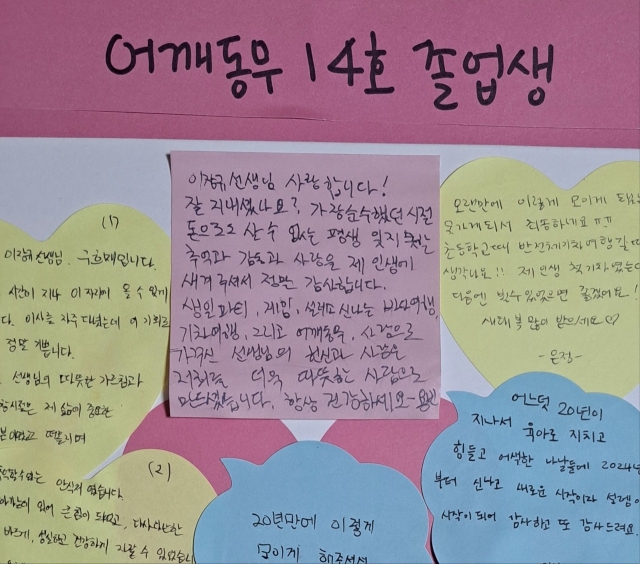 어깨동무 14호 졸업생
이장규선생님 사랑합니다!
잘 지내셨나요? 가장순수했던시절
돈으로도 살 수 없는 평생 잊지 못하는
추억과 감동과 사랑을 제 인생에
새겨주셔서 정말 감사합니다.
생일파티, 게임, 설레고 신나는 비사여행,
기차여행, 그리고 어깨동무, 사랑으로
가르쳐주신 선생님의 헌신과 사랑은
저희를 더욱 따뜻한 사람으로
만드셨습니다. 항상 건강하세요-
(1)
이장규선생님.
시간이 지나 이 자리에 올 수 있게
다. 이사를 자주 다녔는데 이 기회로
정말 기쁩니다.
선생님의 따뜻한 가르침과
시절은 제 삶에 중요한
(2)
안 잊혀졌습니다.
있어 큰 힘이 되었고,
바르게, 성실하고 건강하게 자랄 수 있었습니
오랜만에 이렇게 모이게 되었
못가게되서 죄송하네요 ㅠㅠ
초등학교때 반전체기차여행갈때
생각나요!! 제 인생 첫기차였는데
다음엔 뵐수있었으면 좋겠어요!
새해 복 많이 받으세요♡
-은정-
어느덧 20년이
지나서 육아로 지치고
힘들고 어색한 나날들에 2024년
부터 신나고 새로운 시작이라 설렘이
시작이 되어 감사하고 또 감사드려요.
20년만에 이렇게
모이게 해주셔서